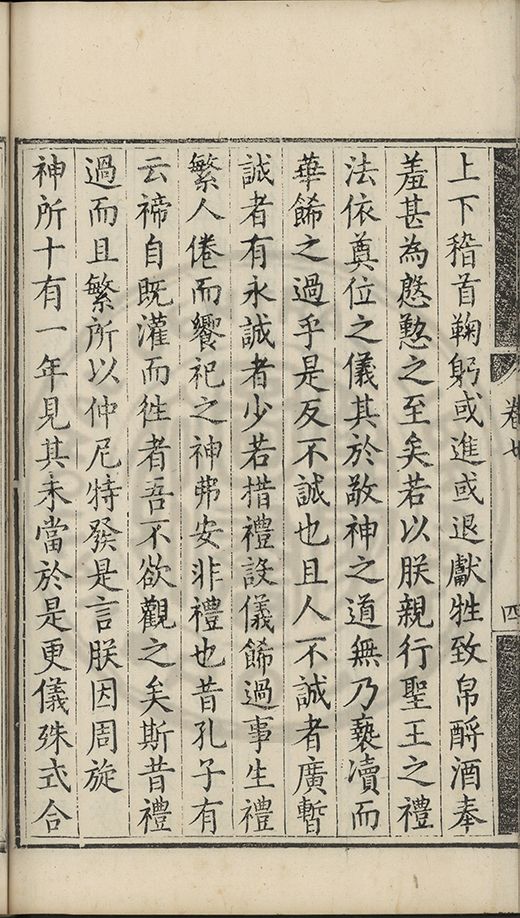 卷廿
四
上下稽首鞠躬或進或退獻牲致帛酹酒奉
羞甚為慇懃之至矣若以朕親行聖王之禮
法依奠位之儀其於敬神之道無乃褻瀆而
華餙之過乎是反不誠也且人不誠者廣暫
誠者有永誠者少若措禮設儀餙過事生禮
繁人倦而饗祀之神弗安非禮也昔孔子有
云禘自既灌而徃者吾不欲觀之矣斯昔禮
過而且繁所以仲尼特發是言朕因周旋
神所十有一年見其未當於是更儀殊式合